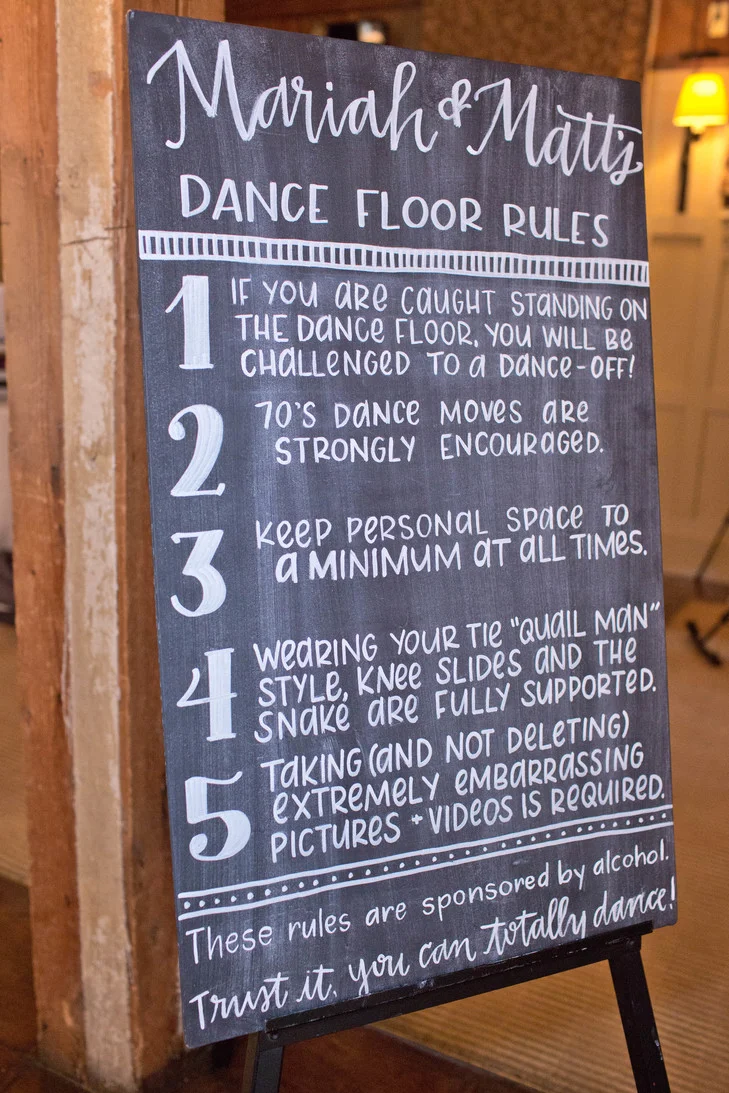 Mariah & Matt's
DANCE FLOOR RULES
1 IF YOU ARE CAUGHT STANDING ON
THE DANCE FLOOR, YOU WILL BE
CHALLENGED TO A DANCE-OFF!
2 70'S DANCE MOVES ARE
STRONGLY ENCOURAGED.
3 KEEP PERSONAL SPACE TO
A MINIMUM AT ALL TIMES.
4 WEARING YOUR TIE "QUAIL MAN"
STYLE, KNEE SLIDES AND THE
SNAKE ARE FULLY SUPPORTED.
5 TAKING (AND NOT DELETING)
EXTREMELY EMBARRASSING
PICTURES + VIDEOS IS REQUIRED.
These rules are sponsored by alcohol.
Trust it, you can totally dance!